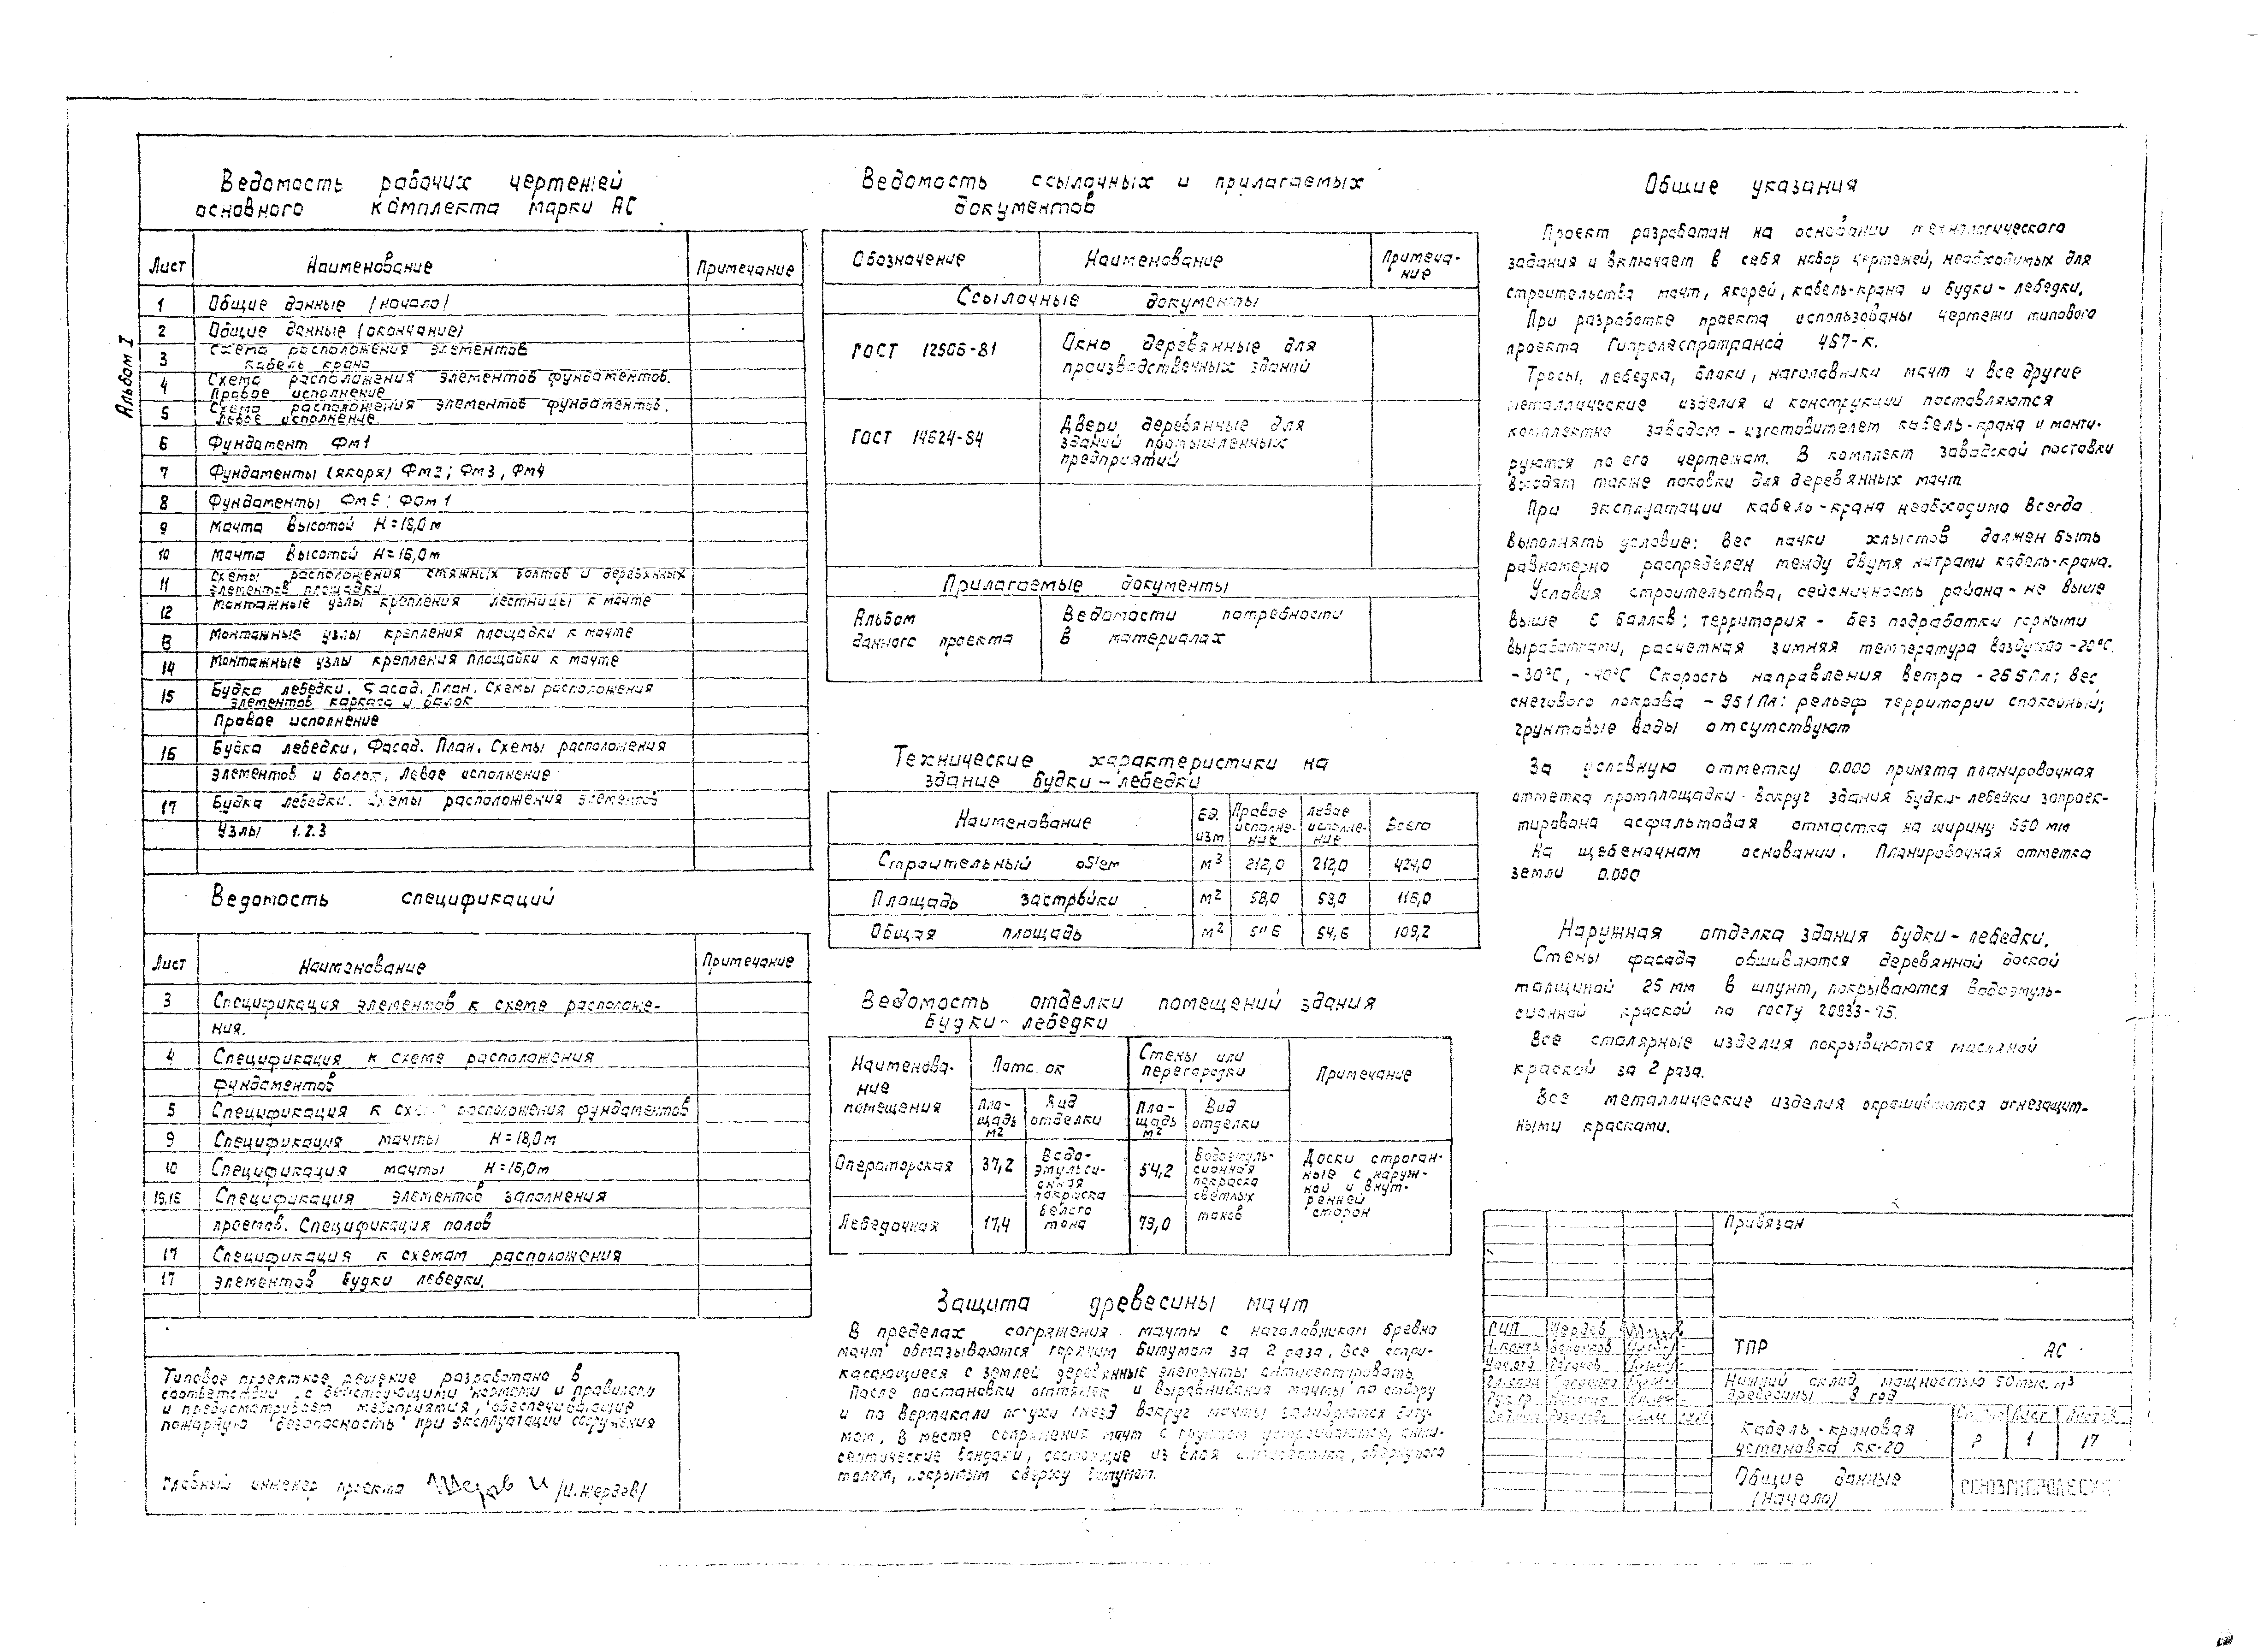 Альбом I
Ведомость рабочих чертежей
основного комплекта марки АС
Лист Наименование Примечание
1 Общие данные (начало)
2 Общие данные (окончание)
3 Схема расположения элементов
кабель крана
4 Схема расположения элементов фундаментов.
Правое исполнение
5 Схема расположения элементов фундаментов.
Левое исполнение.
6 Фундамент Фм1
7 Фундаменты (якоря) Фм2; Фм3, Фм4
8 Фундаменты Фм5; ФОм1
9 Мачта высотой Н=18,0м
10 Мачта высотой Н=16,0м
11 Схемы расположения стяжных болтов и деревянных
элементов площадки
12 Монтажные узлы крепления лестницы к мачте
13 Монтажные узлы крепления площадки к мачте
14 Монтажные узлы крепления площадки к мачте
15 Будка лебедки. Фасад. План. Схемы расположения
элементов каркаса и балок
Правое исполнение
16 Будка лебедки, Фасад. План. Схемы расположения
элементов и балок. Левое исполнение
17 Будка лебедки. Схемы расположения элементов
Узлы 1.2.3
Ведомость спецификаций
Лист Наименование Примечание
3 Спецификация элементов к схеме расположе-
ния.
4 Спецификация к схеме расположения
фундаментов
5 Спецификация к схеме расположения фундаментов
9 Спецификация мачты Н=18,0м
10 Спецификация мачты Н=16,0м
15.16 Спецификация элементов заполнения
проемов. Спецификация полов
17 Спецификация к схемам расположения
17 элементов будки лебедки.
Типовое проектное решение разработано в
соответствии с действующими нормами и правилами
и предусматривает мероприятия, обеспечивающие
пожарную безопасность при эксплуатации сооружения
Главный инженер проекта /И.Жердев/
Ведомость ссылочных и прилагаемых
документов
Обозначение Наименование Примеча-
ние
Ссылочные документы
ГОСТ 12506-81 Окно деревянные для
производственных зданий
ГОСТ 14624-84 Двери деревянные для
зданий промышленных
предприятий
Прилагаемые документы
Альбом Ведомости потребности
данного проекта в материалах
Технические характеристики на
здание будки-лебедки
Наименование Ед. изм Правое исполне-ние Левое исполне-ние Всего
Строительный объем м3 212,0 212,0 424,0
Площадь застройки м2 58,0 58,0 116,0
Общая площадь м2 54,6 54,6 109,2
Ведомость отделки помещений здания
будки-лебедки
Наименова-
ние
помещения Потолок Стены или
перегородки Примечание
Пло-
щадь
м2 Вид
отделки Пло-
щадь
м2 Вид
отделки
Операторская 37,2 Водо-
эмульси-
онная
покраска
белого
тона 54,2 Водоэмуль-
сионная
покраска
светлых
тонов Доски строган-
ные с наруж-
ной и внут-
ренней
сторон
Лебедочная 17,4 79,0
Защита древесины мачт
В пределах сопряжения мачты с наголовником бревна
мачт обмазываются горячим битумом за 2 раза. Все сопри-
касающиеся с землей деревянные элементы антисептировать.
После постановки оттяжек и выравнивания мачты по створу
и по вертикали пазухи гнезд вокруг мачты заливаются биту-
мом. В месте сопряжения мачт с грунтом устраиваются, анти-
септические бандажи, состоящие из слоя антисептика, обернутого
толем, покрытым сверху битумом.
Общие указания
Проект разработан на основании технологического
задания и включает в себя набор чертежей, необходимых для
строительства мачт, якорей, кабель-крана и будки-лебедки.
При разработке проекта использованы чертежи типового
проекта Гипролеспротранса 457-К.
Тросы, лебедка, блоки, наголовники мачт и все другие
металлические изделия и конструкции поставляются
комплектно заводом-изготовителем кабель-крана и монти-
руются по его чертежам. В комплект заводской поставки
входят также поковки для деревянных мачт
При эксплуатации кабель-крана необходимо всегда
выполнять условие: вес пачки хлыстов должен быть
равномерно распределен между двумя нитрами кабель-крана.
Условия строительства, сейсничность района - не выше
выше 6 баллов; территория - без подработки горными
выработками, расчетная зимняя температура воздуха -20°С,
-30°С, -40°С Скорость направления ветра - 265Па; вес
снегового покрова - 981Па: рельеф территории спокойный;
грунтовые воды отсутствуют
За условную отметку 0.000 принята планировочная
отметка промплощадки. Вокруг здания будки-лебедки запроек-
тирована асфальтовая отмостка на ширину 550 мм
на щебеночном основании. Планировочная отметка
земли 0.000
Наружная отделка здания будки-лебедки.
Стены фасада обшиваются деревянной доской
толщиной 25 мм в шпунт, покрываются водоэмуль-
сионной краской по ГОСТу 20833-75.
Все столярные изделия покрываются масляной
краской за 2 раза.
Все металлические изделия окрашиваются огнезащит-
ными красками.
Привязан
ГИП Жердев
ТПР АС
Нижний склад мощностью 50тыс. м3
древесины в год
Кабель-крановая
установка КК-20
Стадия Лист Листов
Р 1 17
Общие данные
(Начало)